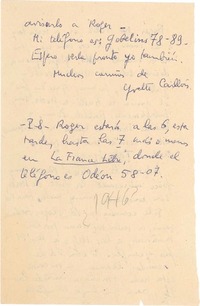 avisarlo a Roger —
Mi teléfono es: Gobelinos 78-89.
Espero verla pronto yo también.
Muchos cariños de
Yvette Caillois.
-P.S- Roger estará a las 6, esta
tarde, hasta las 7 más o menos
en La France Libre, donde el
teléfono es Odéon 58-07.
1946?